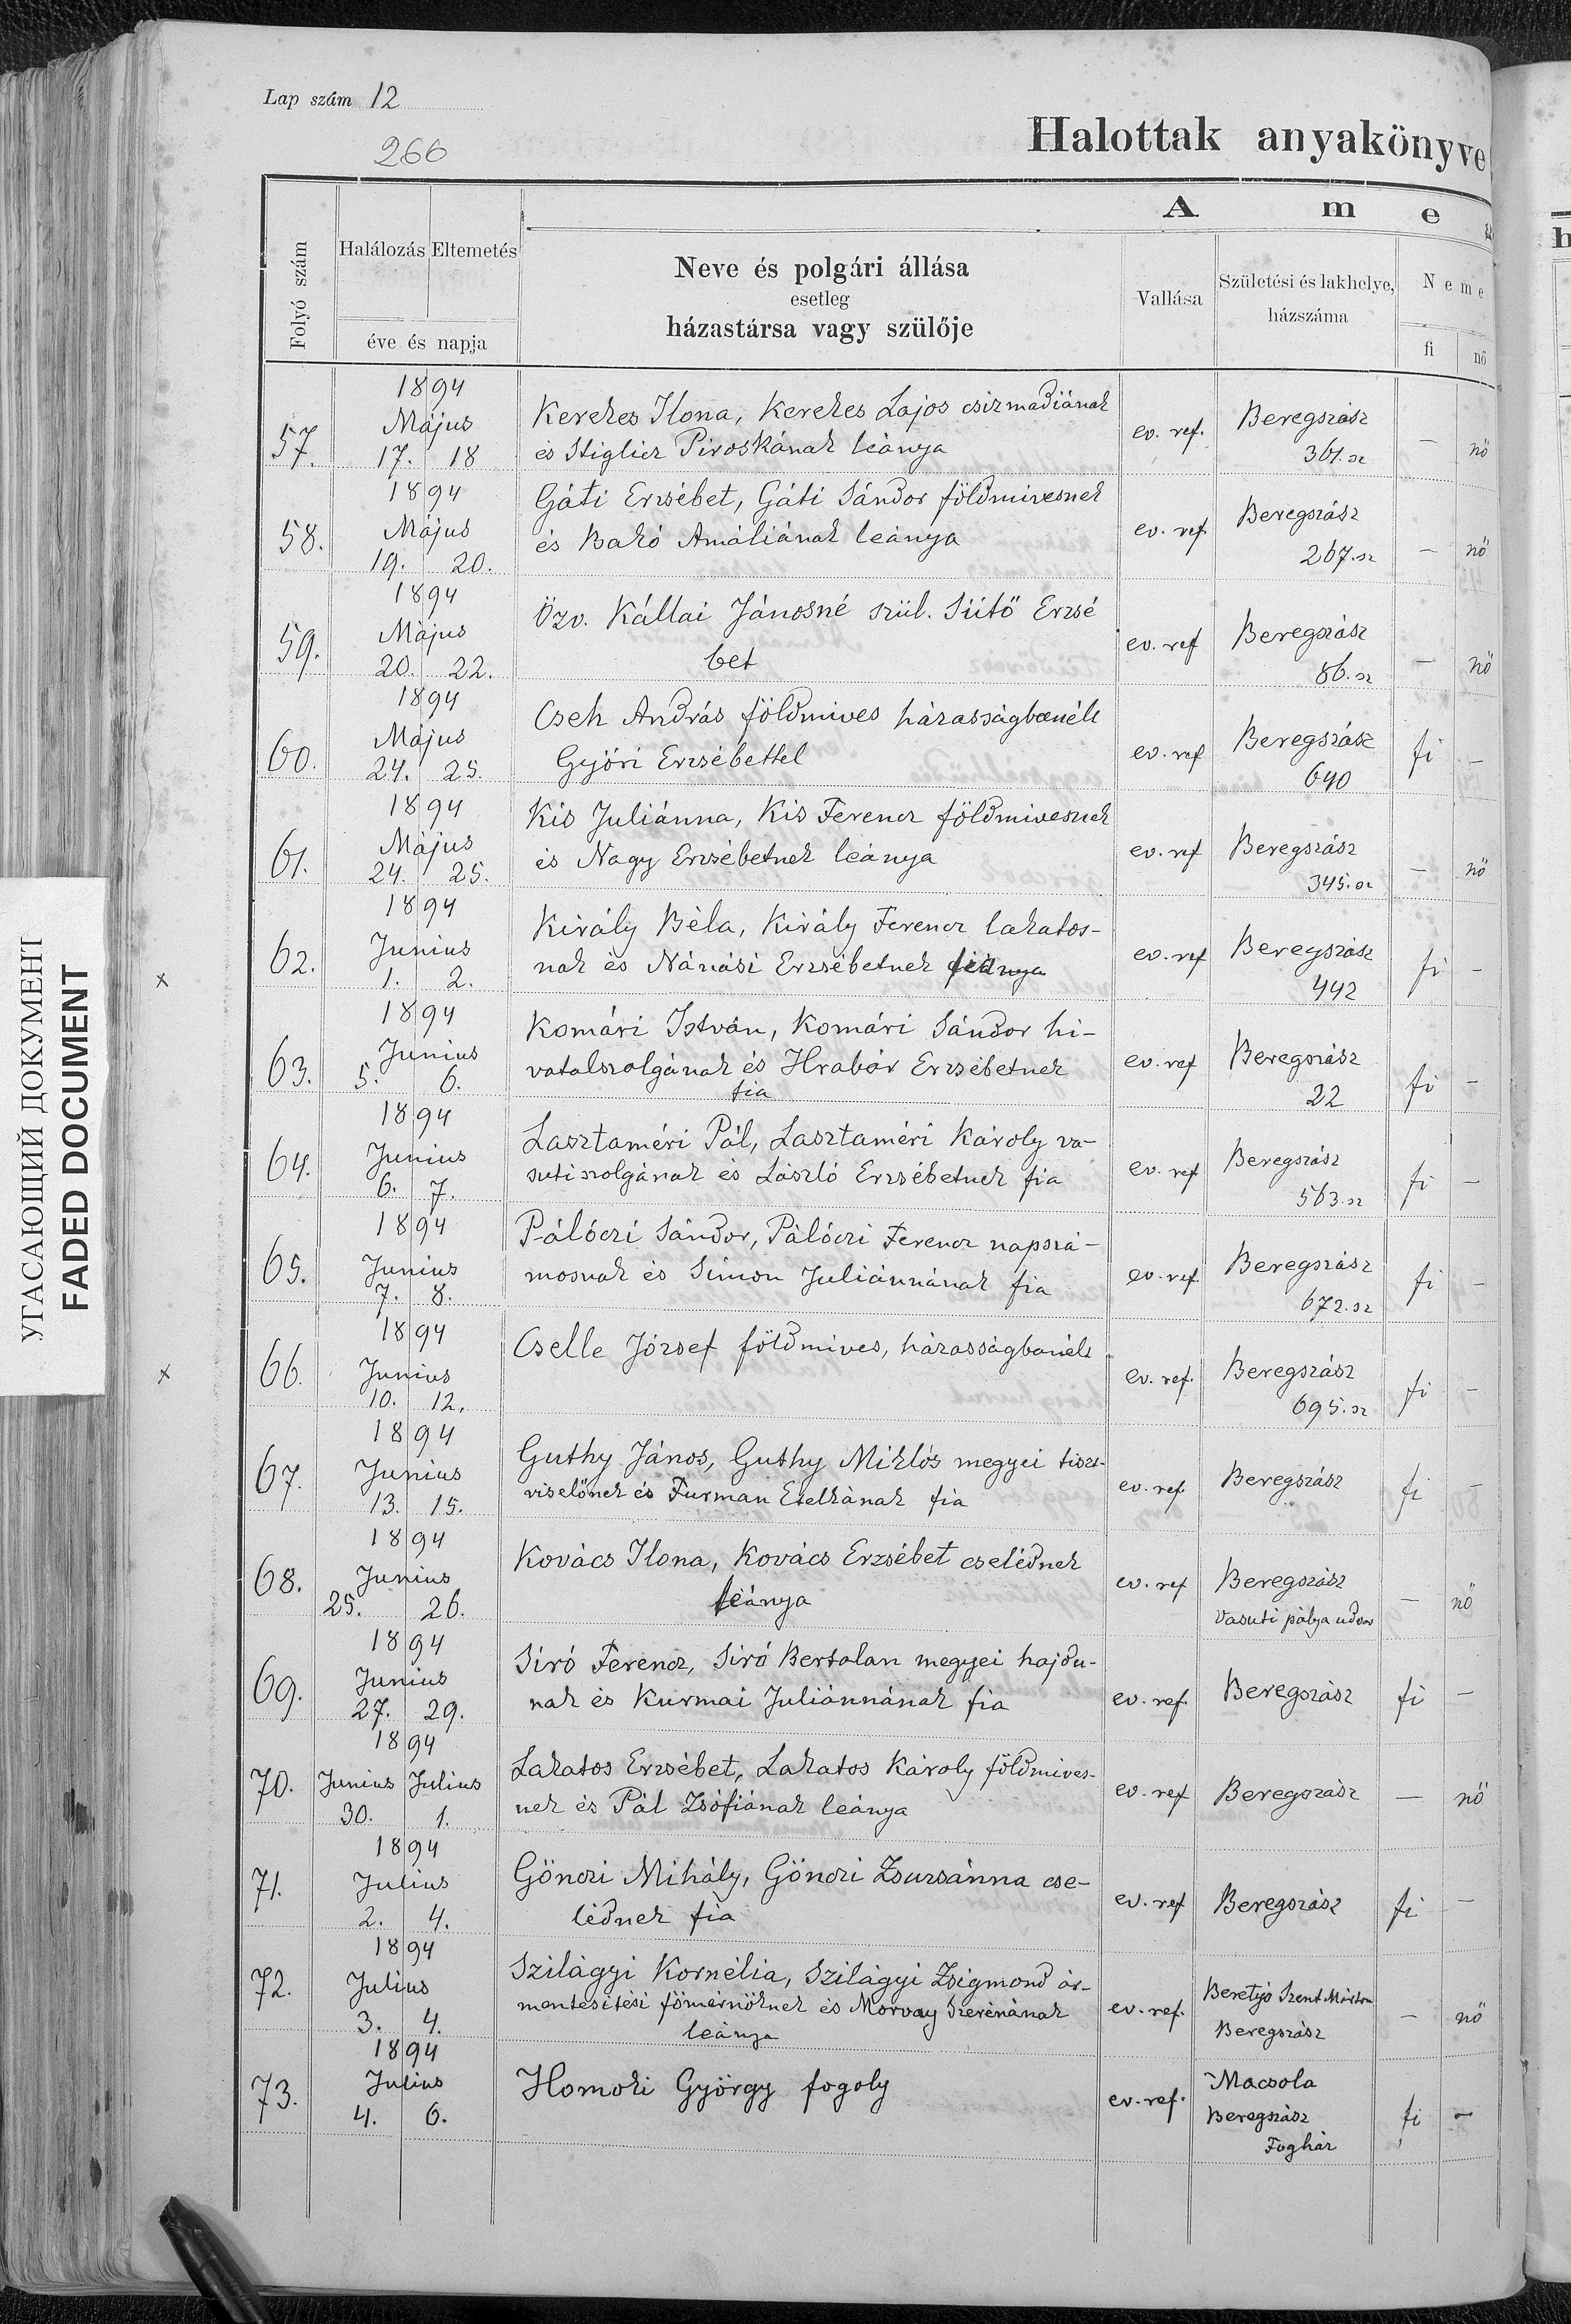 Lap szám 12
266
Halottak anyakönyve
A m e g
Folyó szám
Halálozás Eltemetés
éve és napja
Neve és polgári állása
esetleg
házastársa vagy szülője
Vallása
Születési és lakhelye,
házszáma
Neme
fi nő
1894
57. Május 17. 18
Kerekes Ilona, Kerekes Lajos csizmadiának
és Stiglicz Piroskának leánya
ev. ref. Beregszász
361. sz — nő
1894
58. Május 19. 20.
Gáti Erzsébet, Gáti Sándor földmivesnek
és Bakó Amáliának leánya
ev. ref. Beregszász
267. sz — nő
1894
59. Május 20. 22.
Özv. Kállai Jánosné szül. Sütő Erzsé
bet
ev. ref Beregszász
86. sz — nő
1894
60. Május 24. 25.
Cseh András földmives házasságbanélt
Győri Erzsébettel
ev. ref Beregszász
690 fi —
1894
61. Május 24. 25.
Kis Juliánna, Kis Ferencz földmivesnek
és Nagy Erzsébetnek leánya
ev. ref Beregszász
345. sz — nő
1894
62. Junius 1. 2.
Király Béla, Király Ferencz lakatos-
nak és Nánási Erzsébetnek
ev. ref Beregszász
442 fi —
x
1894
63. Junius 5. 6.
Komári István, Komári Sándor hi-
vatalszolgának és Hrabár Erzsébetnek
fia
ev. ref Beregszász
22 fi —
1894
64. Junius 6. 7.
Lasztaméri Pál, Lasztaméri Károly va-
suti szolgának és László Erzsébetnek fia
ev. ref Beregszász
563. sz fi —
1894
65. Junius 7. 8.
Pálóczi Sándor, Pálóczi Ferencz napszá-
mosnak és Simon Juliánnának fia
ev. ref. Beregszász
672. sz fi —
1894
66. Junius 10. 12.
Cselle József földmives, házasságbanélt
ev. ref. Beregszász
695. sz fi —
x
1894
67. Junius 13. 15.
Guthy János, Guthy Miklós megyei tiszt-
viselőnek és Furman Etelkának fia
ev. ref. Beregszász fi —
1894
68. Junius 25. 26.
Kovács Ilona, Kovács Erzsébet cselédnek
leánya
ev. ref Beregszász
Vasuti pálya udvar — nő
1894
69. Junius 27. 29.
Siró Ferencz, Siró Bertalan megyei hajdu-
nak és Kurmai Juliánnának fia
ev. ref. Beregszász fi —
1894
70. Junius Julius
30. 1.
Lakatos Erzsébet, Lakatos Károly földmives-
nek és Pál Zsófiának leánya
ev. ref Beregszász — nő
1894
71. Julius 2. 4.
Gönczi Mihály, Gönczi Zsuzsánna cse-
lédnek fia
ev. ref Beregszász fi —
1894
72. Julius 3. 4.
Szilágyi Kornélia, Szilágyi Zsigmond ár-
mentesitési főmérnöknek és Morvay Szerénának
leánya
ev. ref. Beretyó Szent Márton
Beregszász — nő
1894
73. Julius 4. 6.
Homoki György fogoly
ev. ref. Macsola
Beregszász
Fogház fi —
УГАСАЮЩИЙ ДОКУМЕНТ
FADED DOCUMENT